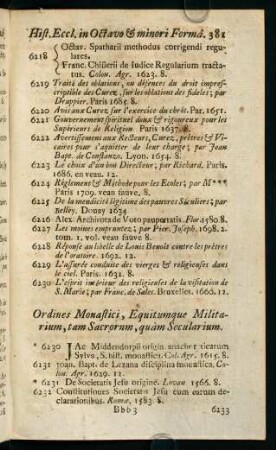 Hist. Eccl. in Octavo & minori Formâ. 381
6218 { Octav. Spatharii methodus corrigendi regulares.
Franc. Chiserii de Iudice Regularium tractatus. Colon. Agr. 1623. 8.
6219 Traité des oblations, ou défences du droit imprescriptible des Curez, sur les oblations des fideles; par
Drappier. Paris 1685. 8.
6220 Avis aux Curez sur l'exercice du chrét. Par. 1651.
6221 Gouvernement spirituel doux & rigoureux pour les
Supérieurs de Religion. Paris 1637. 8.
6222 Avertissement aux Recteurs, Curez, prêtres & Vicaires pour s'aquitter de leur charge; par Jean
Bapt. de Constanzo. Lyon. 1654. 8.
6223 Le choix d'un bon Directeur; par Richard. Paris.
1686. en veau. 12.
6224 Réglement & Methode pour les Ecoles; par M***
Paris 1709. veau fauve. 8.
6225 De la mendicité légitime des pauvres Séculiers; par
. Douay 1634
6226 Alex. Archirota de Voto paupertatis. Flor. 1580. 8.
6227 Les moines empruntez; par Pier. Joseph. 1698. 2.
tom. 1. vol. veau fauve. 8.
6228 Réponse au libelle de Louis Benoît contre les prêtres
de l'oratoire. 1692. 12.
6229 L'assurée conduite des vierges & religieuses dans
le ciel. Paris. 1631. 8.
6230 L'esprit intérieur des religieuses de la visitation de
S. Marie; par Franc. de Sales. Bruxelles. 1660. 12.
Ordines Monastici, Equitumque Militarium, tam Sacrorum, quàm Secularium.
* 6230 JAc Middendorpii origin. anachoreticarum
Sylva, S. hist. monastica. Col. Agr. 1615. 8.
* 6231 Joan. Bapt. de Lezana disciplina monastica. Colon. Agr. 1629. 12.
* 6231 De Societatis Jesu origine. Lovan 1566. 8.
6232 Constitutiones Societatis Jesu cum earum declarationibus. Romæ. 1583. 8.
Bbb 3
6233